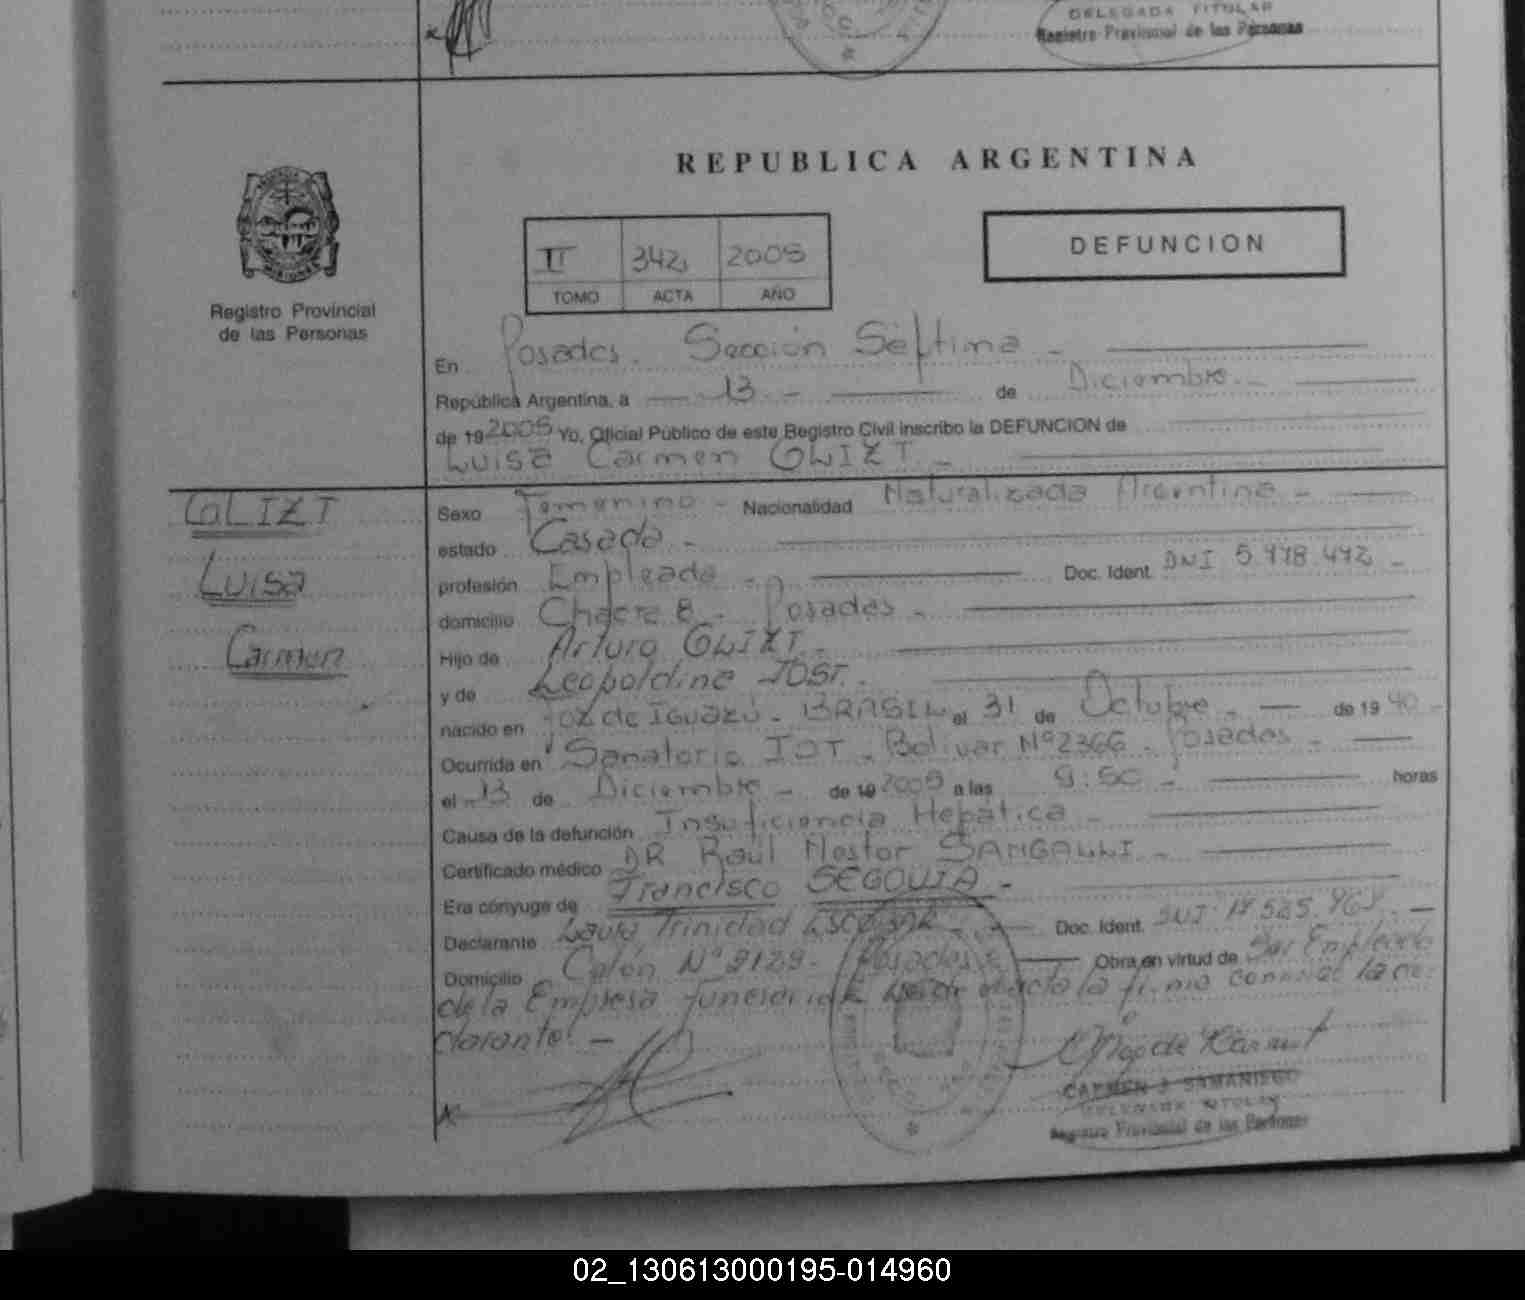 DELEGADA TITULAR
Registro Provincial de las Personas
REPUBLICA ARGENTINA
II 342 2005
DEFUNCION
TOMO ACTA AÑO
Registro Provincial
de las Personas
En Posadas. Sección Séptima -
República Argentina, a 13 - de Diciembre. -
de 19 2005 Yo, Oficial Público de este Registro Civil inscribo la DEFUNCION de
Luisa Carmen GLIZT -
GLIZT
Luisa
Carmen
Sexo Femenino - Nacionalidad Naturalizada Argentina -
estado Casada -
profesión Empleada - Doc. Ident. DNI
domicilio Chacra 8 - Posadas -
Hijo de Arturo GLIZT -
y de Leopoldina JOST.
nacido en Foz de Iguazú - BRASIL el 31 de Octubre - de 19 40 -
Ocurrida en Sanatorio IOT - Bolivar Nº 2366 - Posadas -
el 13 de Diciembre - de 19 2005 a las 9:50 - horas
Causa de la defunción Insuficiencia Hepática -
Certificado médico DR Raúl Nestor SANGALLI -
Era cónyuge de Francisco SEGOVIA -
Declarante Laura Trinidad ESCOBAR - Doc. Ident. DNI
Domicilio Colón Nº 2129 - Posadas Obra en virtud de Ser Empleada
de la Empresa funeraria acta la firma conmigo la de
clarante -
X
CARMEN J. SAMANIEGO
DELEGADA TITULAR
Registro Provincial de las Personas
02_130613000195-014960